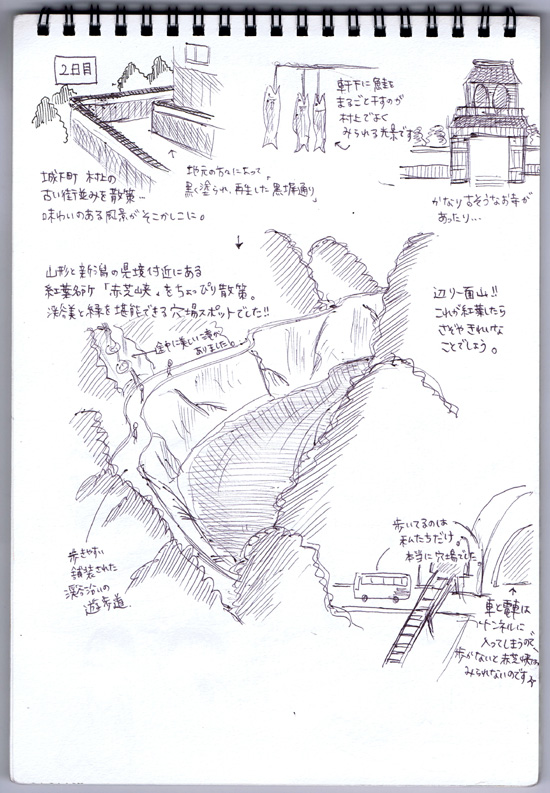 2日目
城下町 村上の
古い街並みを散策…
味わいのある風景がそこかしこに。
地元の方々によって
黒く塗られ、再生した「黒塀通り」
軒下に鮭を
まるごと干すのが
村上でよく
みられる光景です
かなり古そうなお寺が
あったり…
↓
山形と新潟の県境付近にある
紅葉名所「赤芝峡」をちょっぴり散策。
渓谷美と緑を堪能できる穴場スポットでした!!
途中に美しい滝が
ありました。
辺り一面山!!
これが紅葉したら
さぞやきれいな
ことでしょう。
歩きやすい
舗装された
渓谷沿いの
遊歩道
歩いてるのは
私たちだけ。
本当に穴場でした
車と電車は
トンネルに
入ってしまうので、
歩かないと赤芝峡は
みられないのです